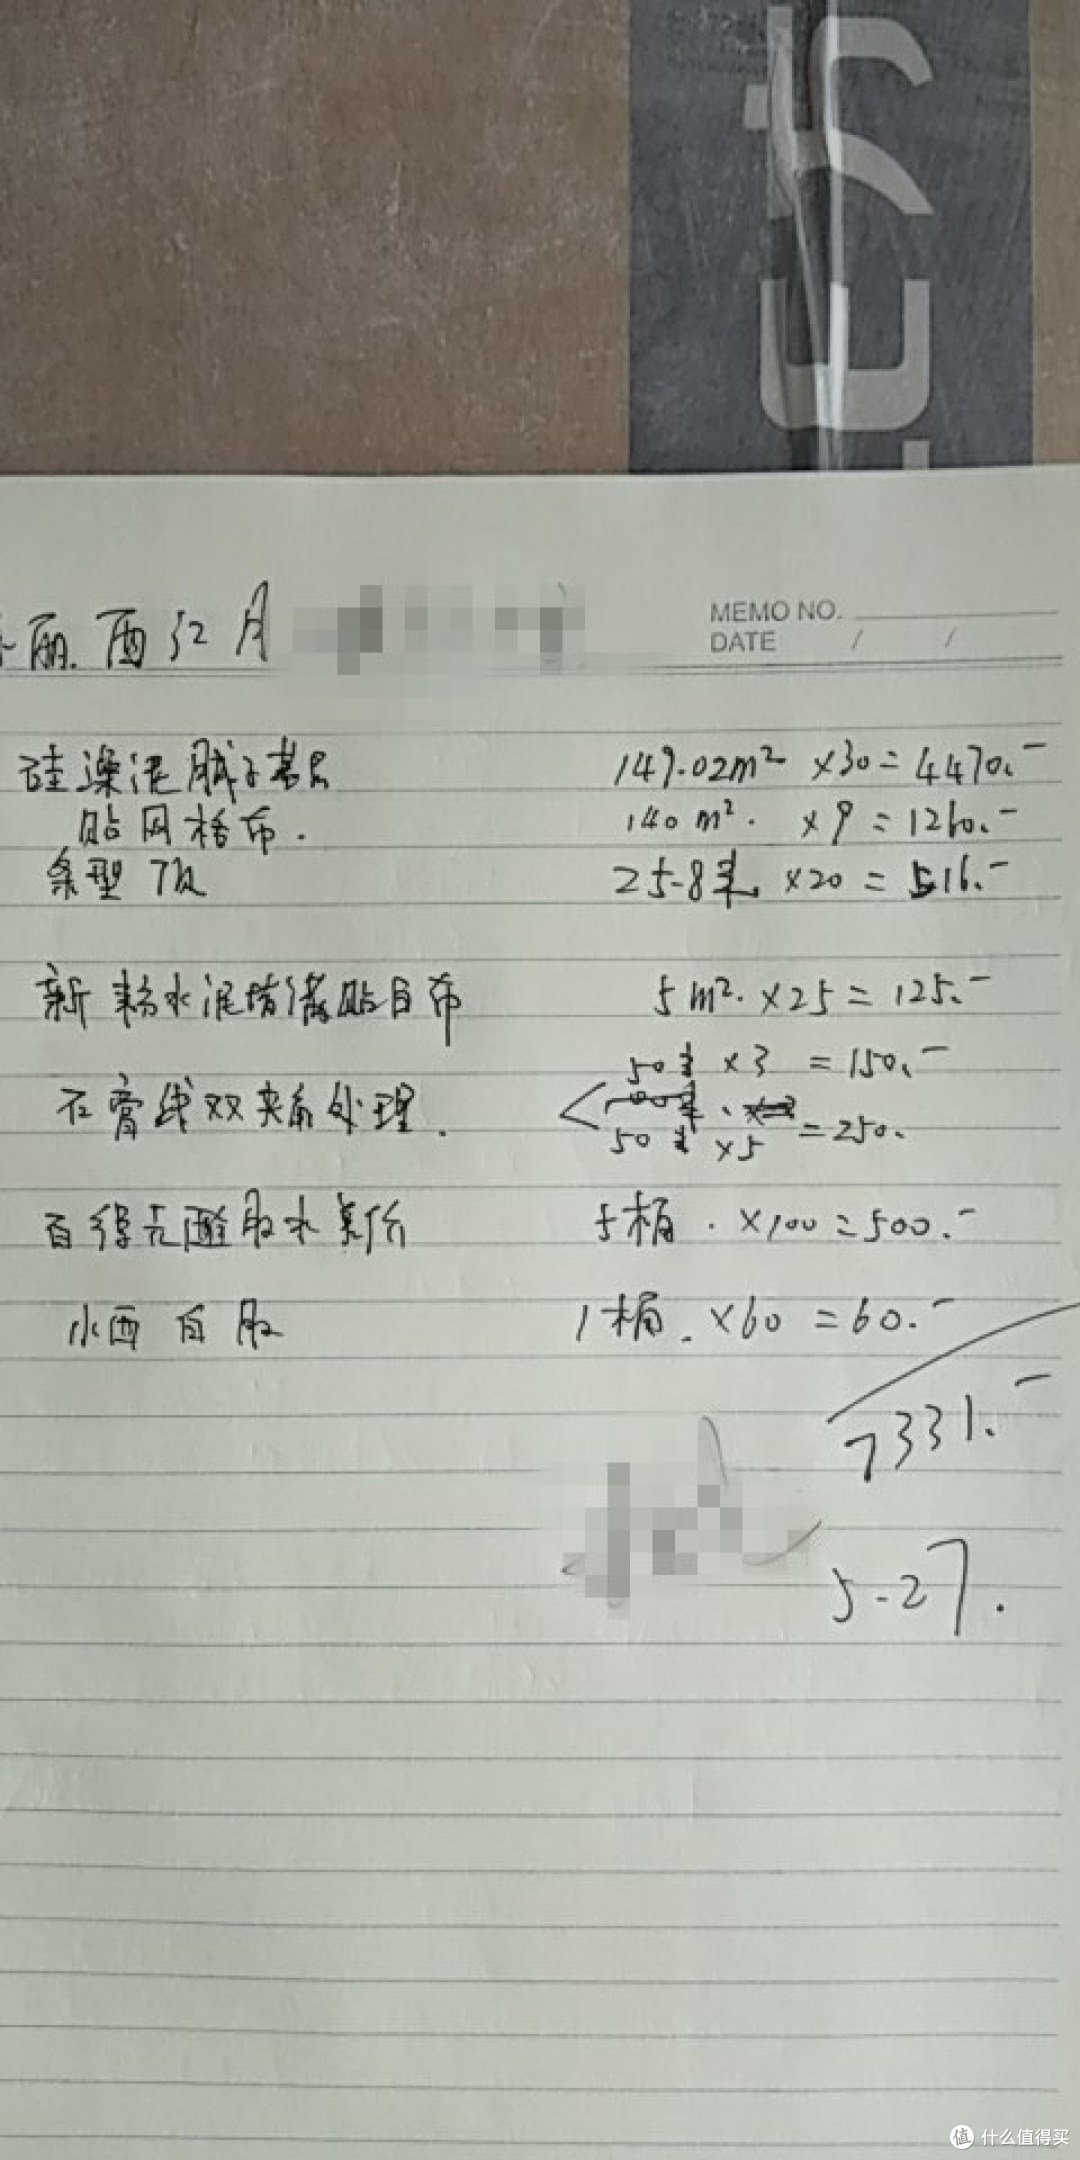 丽.西江月
MEMO NO.
DATE / /
硅藻泥腻子基层 149.02m² ×30=4470.-
贴网格布. 140m². ×9=1260.-
条型顶 25.8米 ×20=516.-
新粉水泥墙满贴的布 5m².×25=125.-
50米×3=150.-
石膏线双夹角处理.
50米×5=250.
百得壳醛胶水差价 5桶.×100=500.-
小西白胶 1桶.×60=60.-
7331.-
5-27.
值 什么值得买